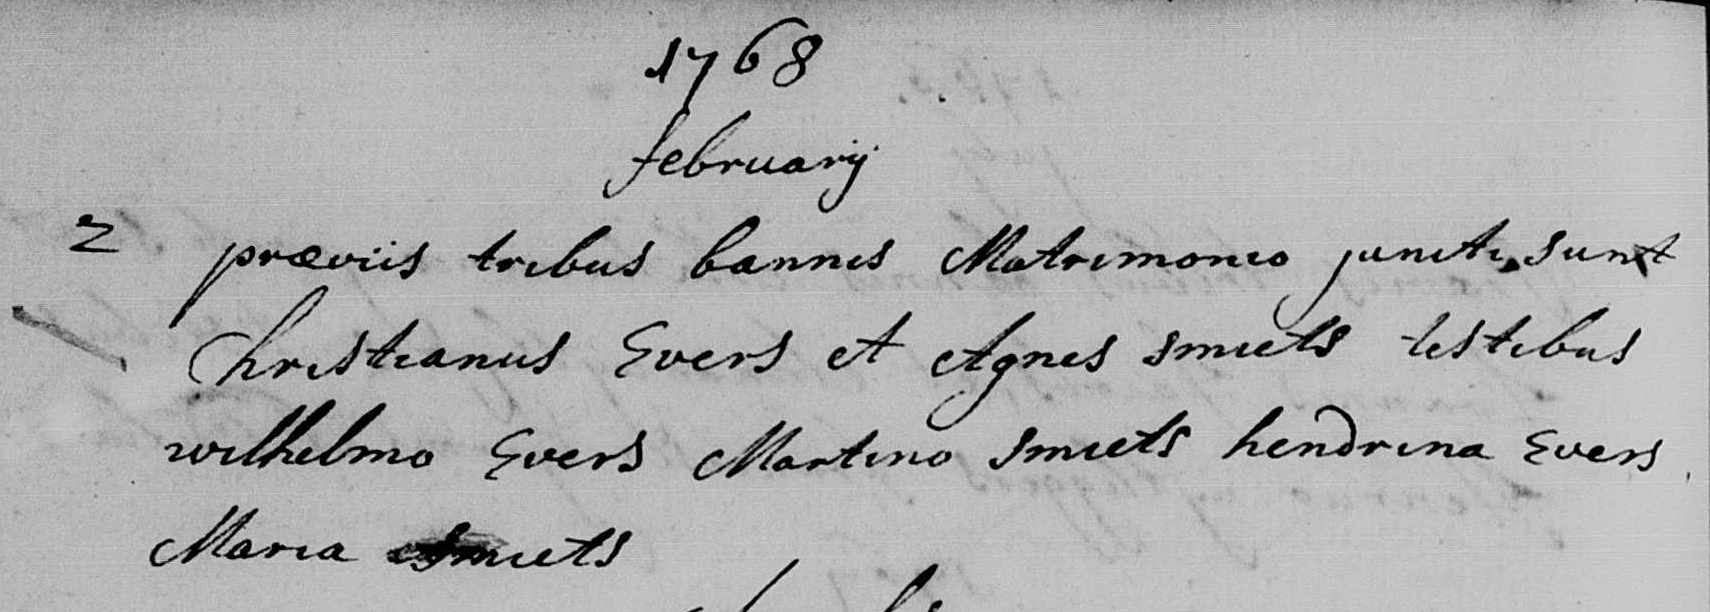 1768
februarij
2 præviis tribus bannis Matrimonio juncti sunt
Christianus Evers et Agnes smiets testibus
wilhelmo Evers Martino smiets hendrina Evers
Maria smiets